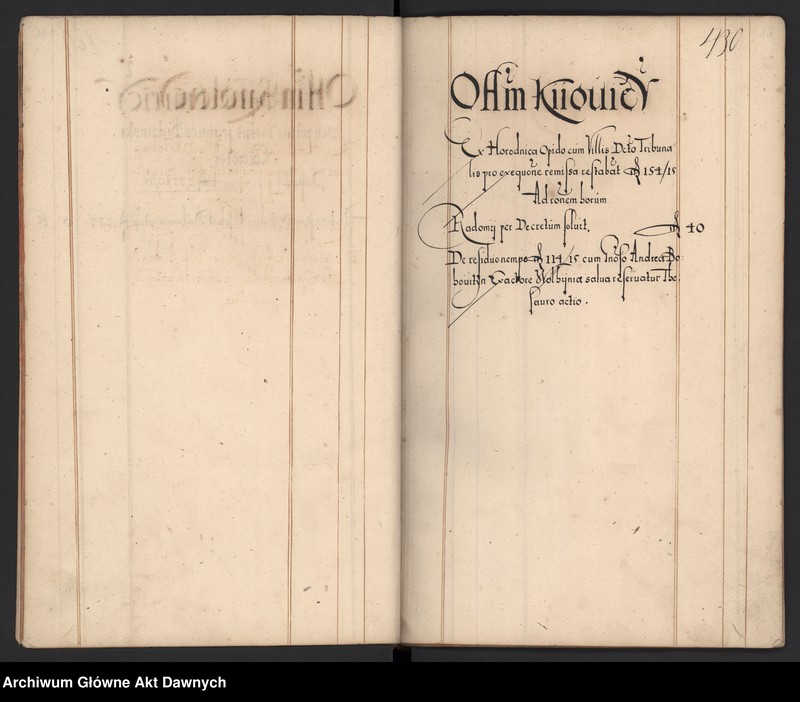 430
Offm Kiiouien
Ex Horodnica Opido cum Villis Decto Tribuna
lis pro exequone remissa restabat fl 154/15
Ad ronem horum
Radomij per Decretum soluit. fl 40
De residuo nempe fl 114/15 cum Gnoso Andrea Bo:
bouitijn Exactore Wolhijniæ salua reseruatur The:
sauro actio.
Archiwum Główne Akt Dawnych